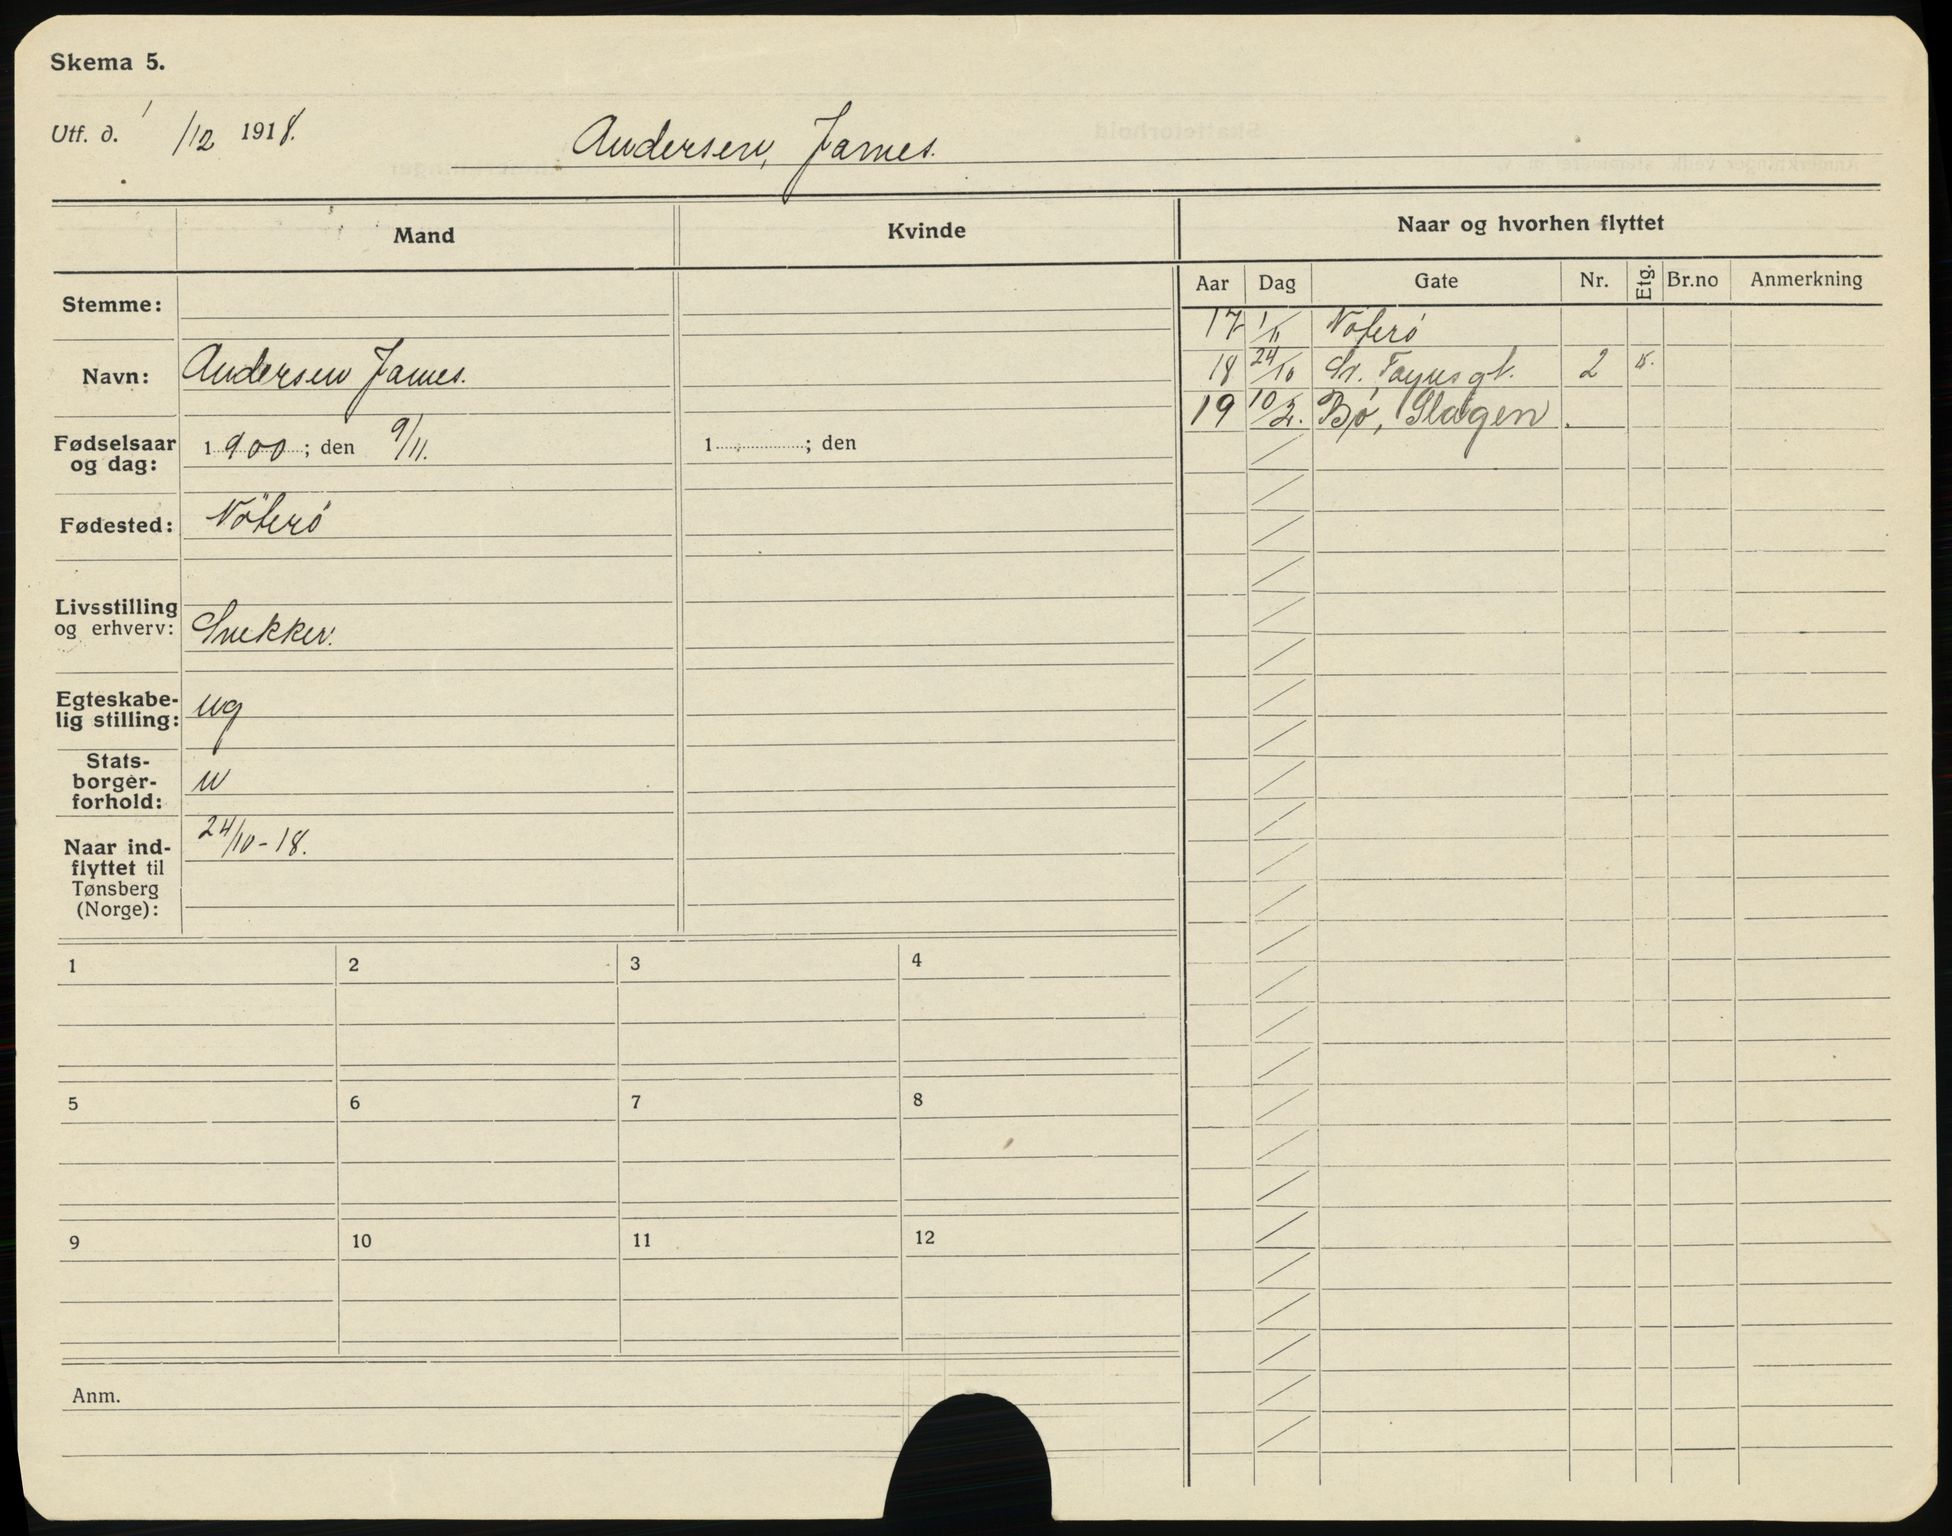 Skema 5.
Utf. d. 1/12 1918.
Andersen, James.
Mand
Kvinde
Naar og hvorhen flyttet
Aar Dag Gate Nr. Etg. Br.no Anmerkning
Stemme:
17 1/11 Nøterø
Navn: Andersen James.
18 24/10 St. gt. 2
19 10/2. Bø, Slagen.
Fødselsaar og dag: 1900; den 9/11.
1 ; den
Fødested: Nøterø
Livsstilling og erhverv: Snekker.
Egteskabe-
lig stilling: ug
Stats-
borger-
forhold: n
Naar ind-
flyttet til
Tønsberg
(Norge): 24/10-18.
1 2 3 4
5 6 7 8
9 10 11 12
Anm.